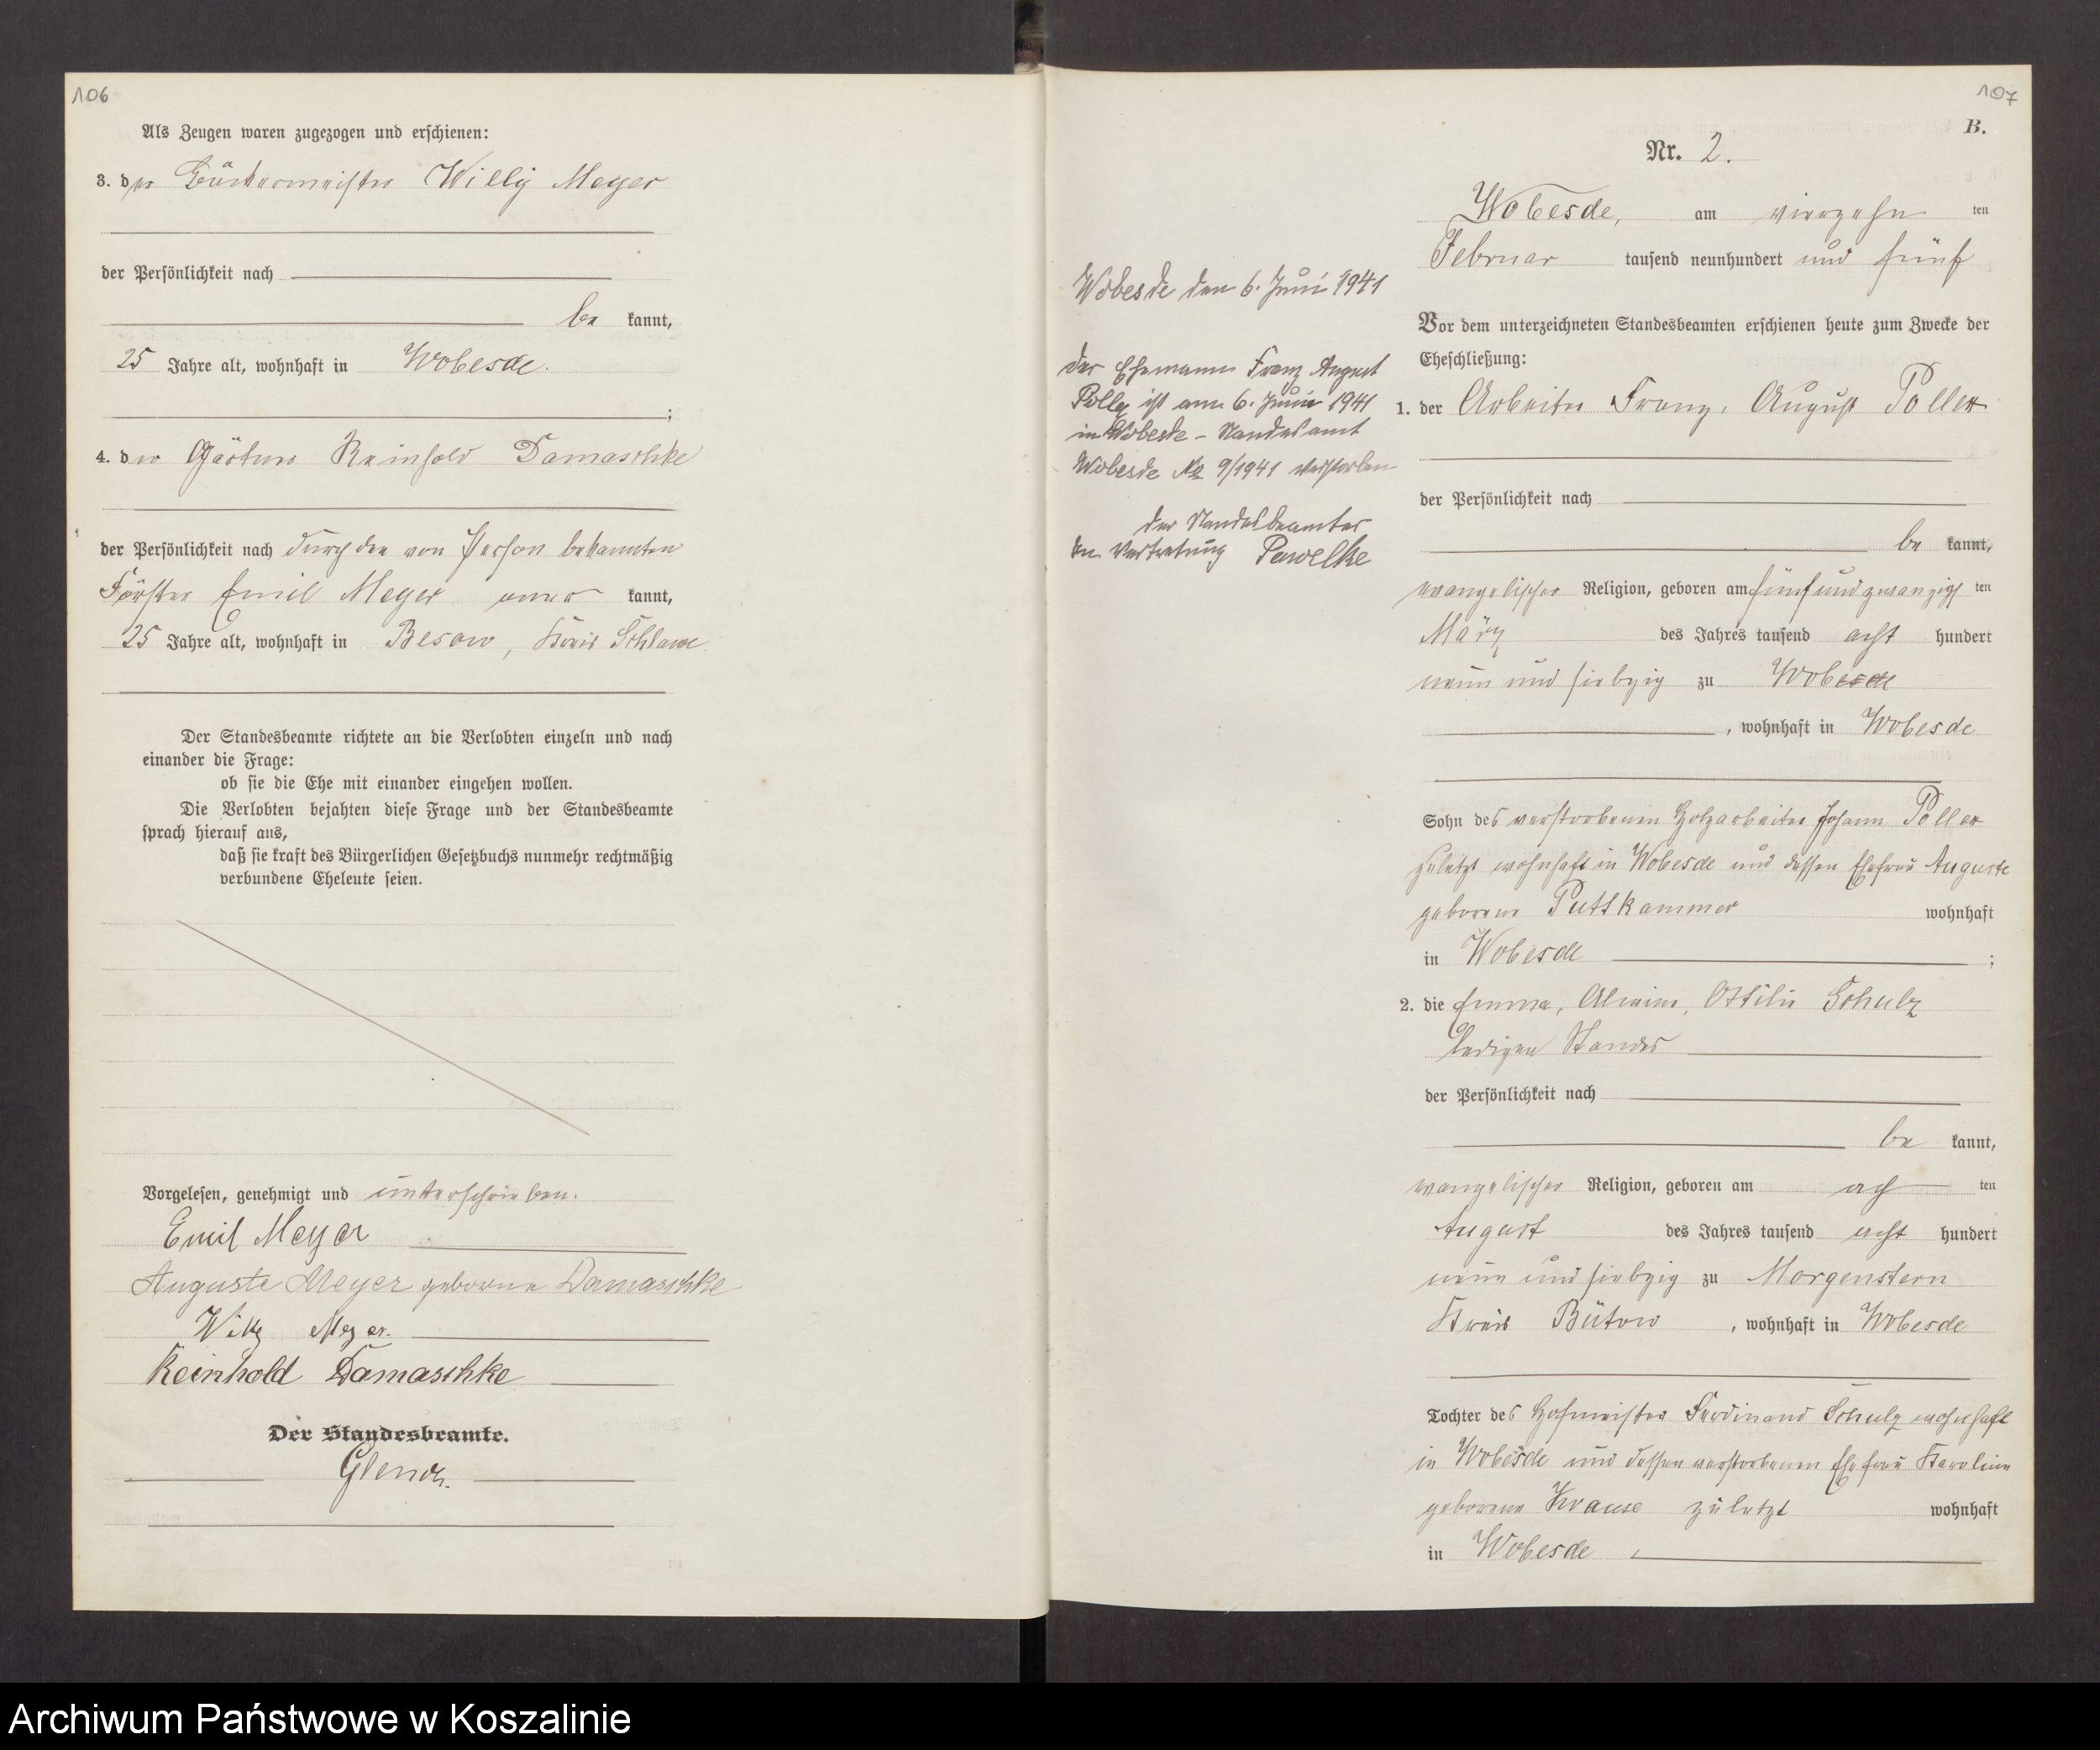 106
Als Zeugen waren zugezogen und erschienen:
3. der Willy Meyer
der Persönlichkeit nach
be kannt,
25 Jahre alt, wohnhaft in Wobesde.
;
4. der Gärtner Reinhold Damaschke
der Persönlichkeit nach durch den von Person bekannten
Förster Emil Meyer aner kannt,
25 Jahre alt, wohnhaft in Besow, Kreis Schlawe.
Der Standesbeamte richtete an die Verlobten einzeln und nach
einander die Frage:
ob sie die Ehe mit einander eingehen wollen.
Die Verlobten bejahten diese Frage und der Standesbeamte
sprach hierauf aus,
daß sie kraft des Bürgerlichen Gesetzbuchs nunmehr rechtmäßig
verbundene Eheleute seien.
Vorgelesen, genehmigt und unterschrieben.
Emil Meyer
Auguste Meyer geborene Damaschke
Willy Meyer.
Reinhold Damaschke
Der Standesbeamte.
107
B.
Nr. 2.
Wobesde, am vierzehn ten
Februar tausend neunhundert und fünf
Vor dem unterzeichneten Standesbeamten erschienen heute zum Zwecke der
Eheschließung:
1. der Arbeiter Franz, August
der Persönlichkeit nach
be kannt,
evangelischer Religion, geboren am fünfundzwanzigsten
März des Jahres tausend acht hundert
neun und siebzig zu Wobesde
, wohnhaft in Wobesde
Sohn des verstorbenen Holzarbeiter Johann
zuletzt wohnhaft in Wobesde und dessen Ehefrau Auguste
geborene Puttkammer wohnhaft
in Wobesde ;
2. die Emma, Alwine, Ottilie Schulz
ledigen Standes
der Persönlichkeit nach
be kannt,
evangelischer Religion, geboren am ach ten
August des Jahres tausend acht hundert
neun und siebzig zu Morgenstern
Kreis Bütow , wohnhaft in Wobesde
Tochter des Hofmeister Ferdinand Schulz wohnhaft
in Wobesde und dessen verstorbenen Ehefrau Karoline
geborene Krause zuletzt wohnhaft
in Wobesde
Wobesde den 6. Juni 1941
Der Ehemann Franz August
ist am 6. Juni 1941
in Wobesde - Standesamt
Wobesde No 9/1941 verstorben
Der Standesbeamte
In Vertretung Pawelke
Archiwum Państwowe w Koszalinie